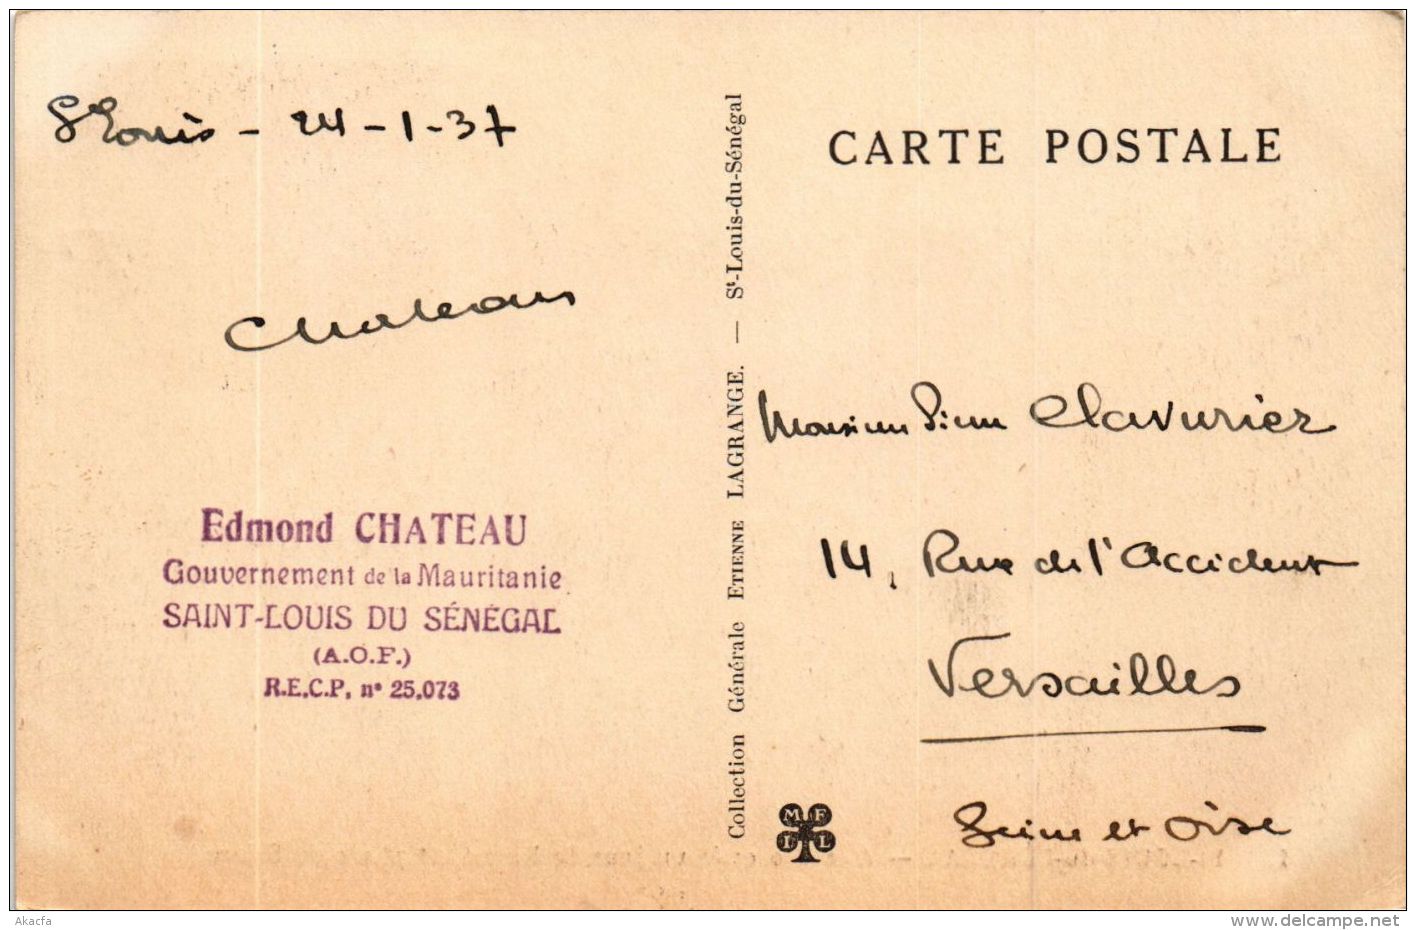 St Louis - 24-1-37
Chateau
Edmond CHATEAU
Gouvernement de la Mauritanie
SAINT-LOUIS DU SÉNÉGAL
(A.O.F.)
R.E.C.P. n° 25.073
Collection Générale ETIENNE LAGRANGE. — St-Louis-du-Sénégal
CARTE POSTALE
Monsieur Pierre Clavurier
14, Rue de l'Occident
Versailles
Seine et Oise
M F
I L
Akacfa
delcampe.net